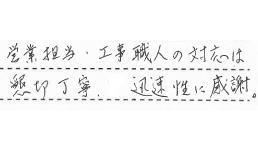 営業担当・工事職人の対応は
懇切丁寧、迅速性に感謝。